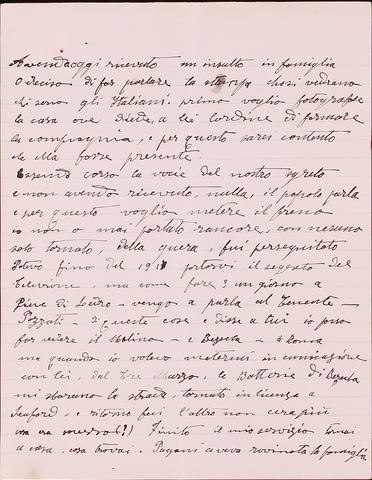 Avendo oggi ricevuto un insulto in famiglia
O deciso di far parlare la stampa chosi vedrano
chi sono gli Italiani. primo voglio fotografare
la casa ove diede, a lei l'ordine di formare
la compagnia, e per questo sarei contento
che ella forse presente.
Essendo corsa la vocie del nostro sgreto
e non avendo ricevuto, nulla, il popolo parla
e per questo voglio metere il freno
io non o mai portato rancore, con nesuno
solo tornato, della guera, fui perseguitato
fino del 191 portarvi il segreto del
ma come fare? un giorno a
Pieve di Ledro - vengo a parla al Tenente -
Pozzati - queste cose e disse a lui io posso
far vedere il Molino - e - a Roma
ma quando io volevo metermi in comunicazione
con lei, dal Tre Marzo, le Batterie di
mi la strada, tornato in licenza a
e ritorno l'altro non cera piu
ora era (?) Finito il mio servizio tornai
a casa, cosa trovai. Pagani aveva rovinata la famiglia